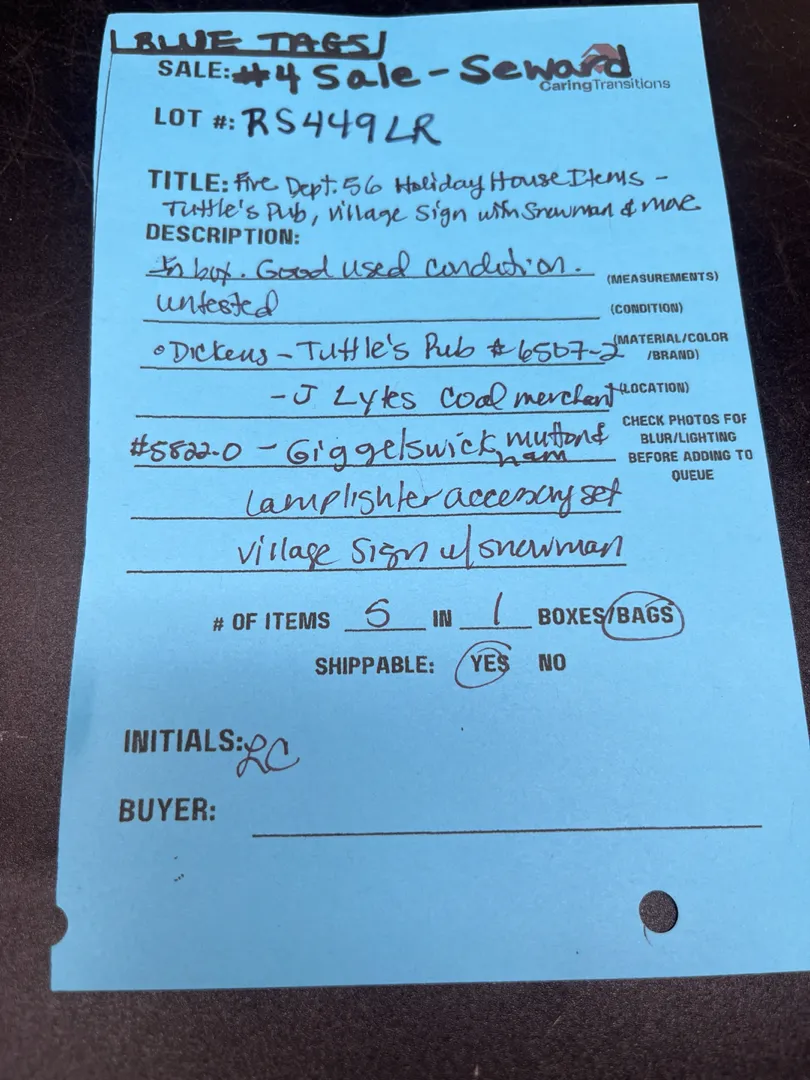 BLUE TAGS
SALE: #4 Sale - Seward
CaringTransitions
LOT #: RS449LR
TITLE: Five Dept. 56 Holiday House Items -
Tuttle's Pub, Village Sign with Snowman & more
DESCRIPTION:
In box. Good used condition. (MEASUREMENTS)
untested (CONDITION)
• Dickens - Tuttle's Pub # 6507-2 (MATERIAL/COLOR
/BRAND)
- J Lytes Coal merchant (LOCATION)
#5822-0 - Giggelswick mutton &
ham
CHECK PHOTOS FOR
BLUR/LIGHTING
BEFORE ADDING TO
QUEUE
Lamplighter accessory set
village Sign w/ snowman
# OF ITEMS 5 IN 1 BOXES/BAGS
SHIPPABLE: YES NO
INITIALS: LC
BUYER: